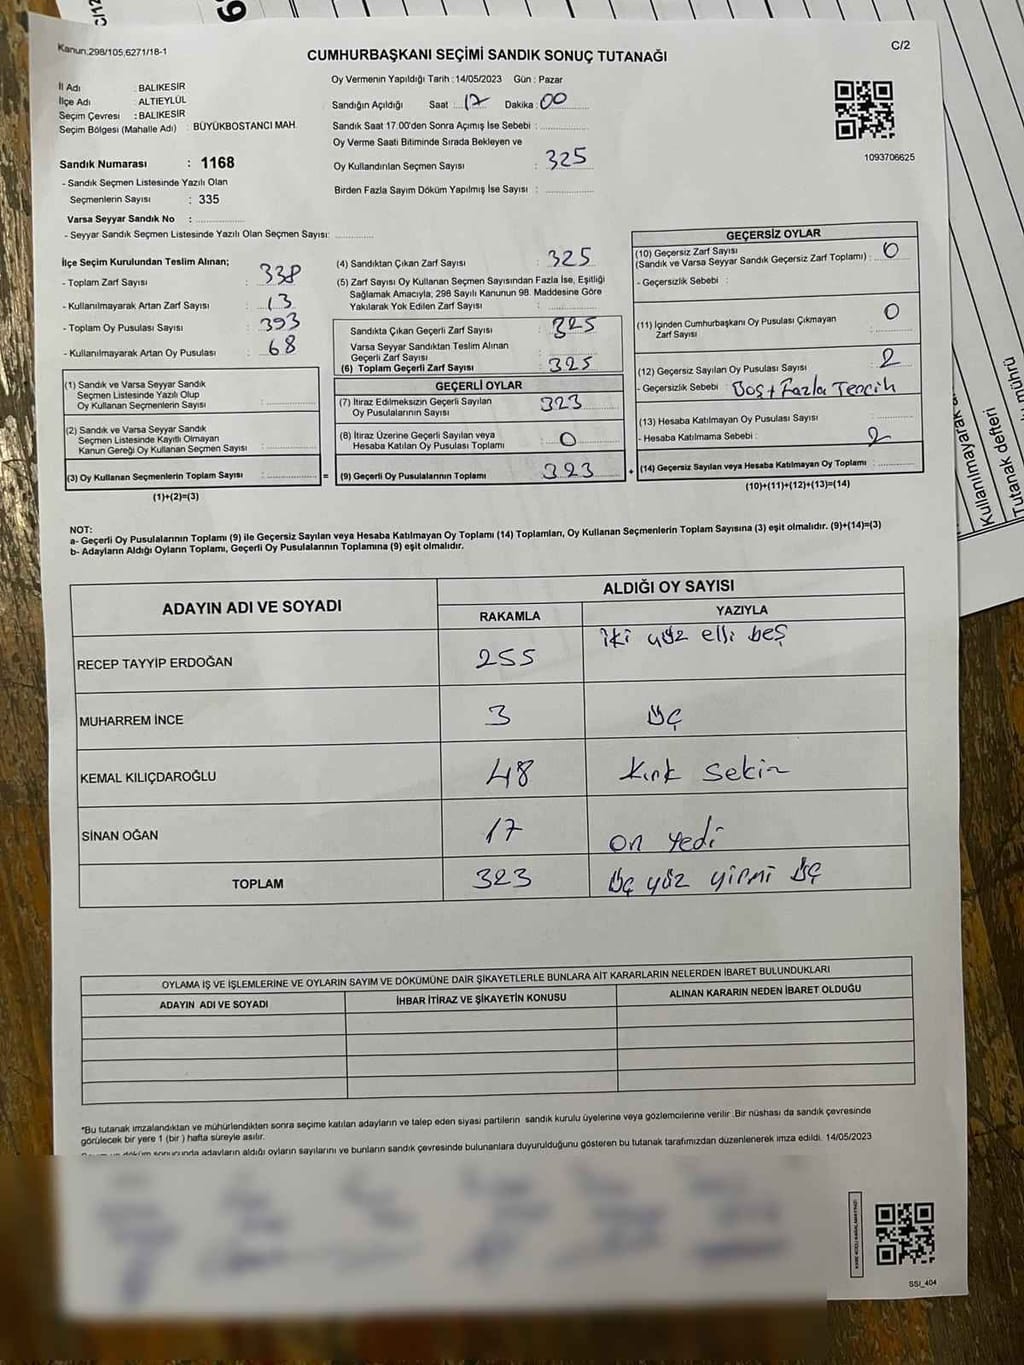 C/12
Kanun.298/105,6271/18-1
C/2
CUMHURBAŞKANI SEÇİMİ SANDIK SONUÇ TUTANAĞI
İl Adı : BALIKESİR
İlçe Adı : ALTIEYLÜL
Seçim Çevresi : BALIKESİR
Seçim Bölgesi (Mahalle Adı) : BÜYÜKBOSTANCI MAH.
Sandık Numarası : 1168
- Sandık Seçmen Listesinde Yazılı Olan
Seçmenlerin Sayısı : 335
Varsa Seyyar Sandık No :
- Seyyar Sandık Seçmen Listesinde Yazılı Olan Seçmen Sayısı:
Oy Vermenin Yapıldığı Tarih :14/05/2023 Gün : Pazar
Sandığın Açıldığı Saat : 17 Dakika : 00
Sandık Saat 17.00'den Sonra Açımış İse Sebebi :
Oy Verme Saati Bitiminde Sırada Bekleyen ve
Oy Kullandırılan Seçmen Sayısı : 325
Birden Fazla Sayım Döküm Yapılmış İse Sayısı :
1093706625
İlçe Seçim Kurulundan Teslim Alınan;
- Toplam Zarf Sayısı : 338
- Kullanılmayarak Artan Zarf Sayısı : 13
- Toplam Oy Pusulası Sayısı : 393
- Kullanılmayarak Artan Oy Pusulası : 68
(1) Sandık ve Varsa Seyyar Sandık
Seçmen Listesinde Yazılı Olup
Oy Kullanan Seçmenlerin Sayısı :
(2) Sandık ve Varsa Seyyar Sandık
Seçmen Listesinde Kayıtlı Olmayan
Kanun Gereği Oy Kullanan Seçmen Sayısı :
(3) Oy Kullanan Seçmenlerin Toplam Sayısı :
(1)+(2)=(3)
(4) Sandıktan Çıkan Zarf Sayısı : 325
(5) Zarf Sayısı Oy Kullanan Seçmen Sayısından Fazla İse, Eşitliği
Sağlamak Amacıyla; 298 Sayılı Kanunun 98. Maddesine Göre
Yakılarak Yok Edilen Zarf Sayısı :
Sandıkta Çıkan Geçerli Zarf Sayısı : 325
Varsa Seyyar Sandıktan Teslim Alınan
Geçerli Zarf Sayısı :
(6) Toplam Geçerli Zarf Sayısı : 325
GEÇERLİ OYLAR
(7) İtiraz Edilmeksizin Geçerli Sayılan
Oy Pusulalarının Sayısı : 323
(8) İtiraz Üzerine Geçerli Sayılan veya
Hesaba Katılan Oy Pusulası Toplamı : 0
= (9) Geçerli Oy Pusulalarının Toplamı : 323
GEÇERSİZ OYLAR
(10) Geçersiz Zarf Sayısı
(Sandık ve Varsa Seyyar Sandık Geçersiz Zarf Toplamı) : 0
- Geçersizlik Sebebi :
(11) İçinden Cumhurbaşkanı Oy Pusulası Çıkmayan
Zarf Sayısı : 0
(12) Geçersiz Sayılan Oy Pusulası Sayısı : 2
- Geçersizlik Sebebi : Boş + Fazla Tercih
(13) Hesaba Katılmayan Oy Pusulası Sayısı :
- Hesaba Katılmama Sebebi :
+ (14) Geçersiz Sayılan veya Hesaba Katılmayan Oy Toplamı : 2
(10)+(11)+(12)+(13)=(14)
NOT:
a- Geçerli Oy Pusulalarının Toplamı (9) ile Geçersiz Sayılan veya Hesaba Katılmayan Oy Toplamı (14) Toplamları, Oy Kullanan Seçmenlerin Toplam Sayısına (3) eşit olmalıdır. (9)+(14)=(3)
b- Adayların Aldığı Oyların Toplamı, Geçerli Oy Pusulalarının Toplamına (9) eşit olmalıdır.
ADAYIN ADI VE SOYADI
ALDIĞI OY SAYISI
RAKAMLA YAZIYLA
RECEP TAYYİP ERDOĞAN 255 iki yüz elli beş
MUHARREM İNCE 3 üç
KEMAL KILIÇDAROĞLU 48 kırk sekiz
SİNAN OĞAN 17 on yedi
TOPLAM 323 üç yüz yirmi üç
OYLAMA İŞ VE İŞLEMLERİNE VE OYLARIN SAYIM VE DÖKÜMÜNE DAİR ŞİKAYETLERLE BUNLARA AİT KARARLARIN NELERDEN İBARET BULUNDUKLARI
ADAYIN ADI VE SOYADI İHBAR İTİRAZ VE ŞİKAYETİN KONUSU ALINAN KARARIN NEDEN İBARET OLDUĞU
*Bu tutanak imzalandıktan ve mühürlendikten sonra seçime katılan adayların ve talep eden siyasi partilerin sandık kurulu üyelerine veya gözlemcilerine verilir .Bir nüshası da sandık çevresinde
görülecek bir yere 1 (bir ) hafta süreyle asılır.
Sayım ve döküm sonucunda adayların aldığı oyların sayılarını ve bunların sandık çevresinde bulunanlara duyurulduğunu gösteren bu tutanak tarafımızdan düzenlenerek imza edildi. 14/05/2023
SSI_404
Kullanılmayarak
Tutanak defteri
mührü